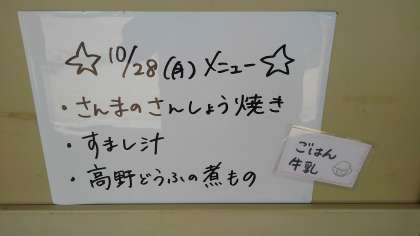 ☆10/28(月)メニュー☆
・さんまのさんしょう焼き
・すまし汁
・高野どうふの煮もの
ごはん
牛乳